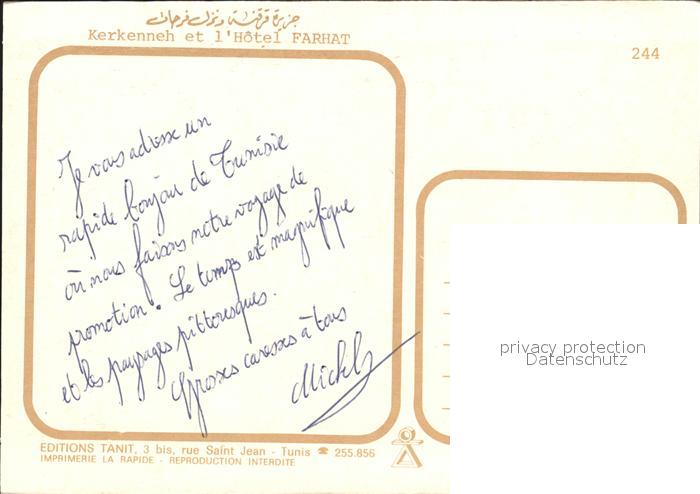 جزيرة قرقنة ونزل فرحات
Kerkenneh et l'Hôtel FARHAT
244
Je vous adresse un
rapide bonjour de Tunisie
où nous faisons notre voyage de
promotion. Le temps est magnifique
et les paysages pittoresques.
Grosses caresses à tous
Michel
privacy protection
Datenschutz
EDITIONS TANIT, 3 bis, rue Saint Jean - Tunis ☎ 255.856
IMPRIMERIE LA RAPIDE - REPRODUCTION INTERDITE